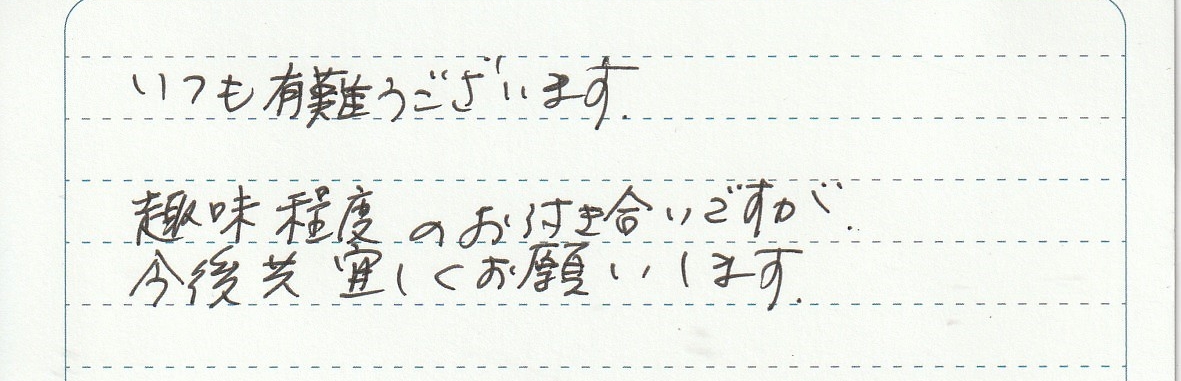 いつも有難うございます.
趣味程度のお付き合いですが.
今後共宜しくお願いします.